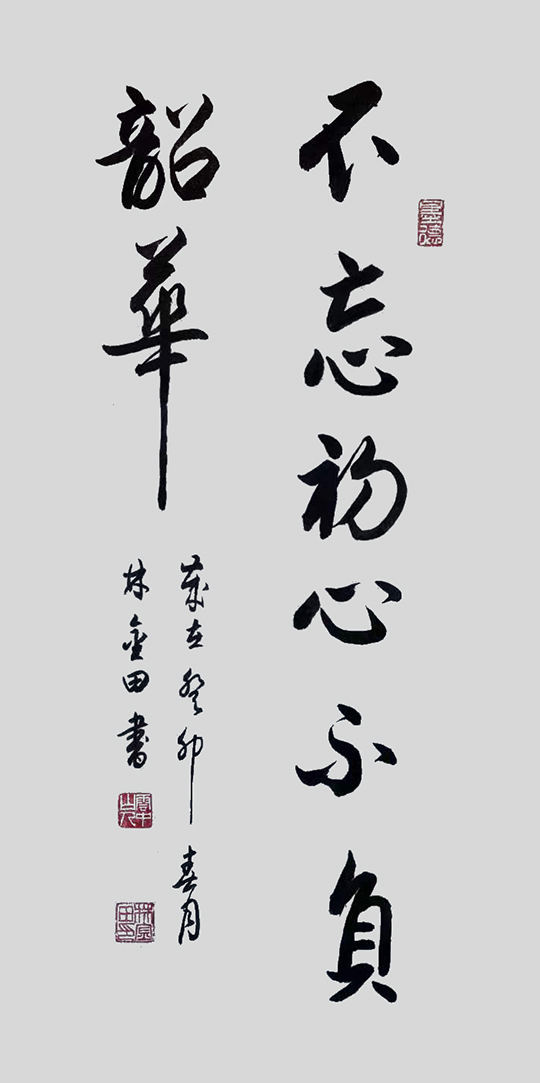 不忘初心不負
韶華
歲在癸卯春月
林金田書